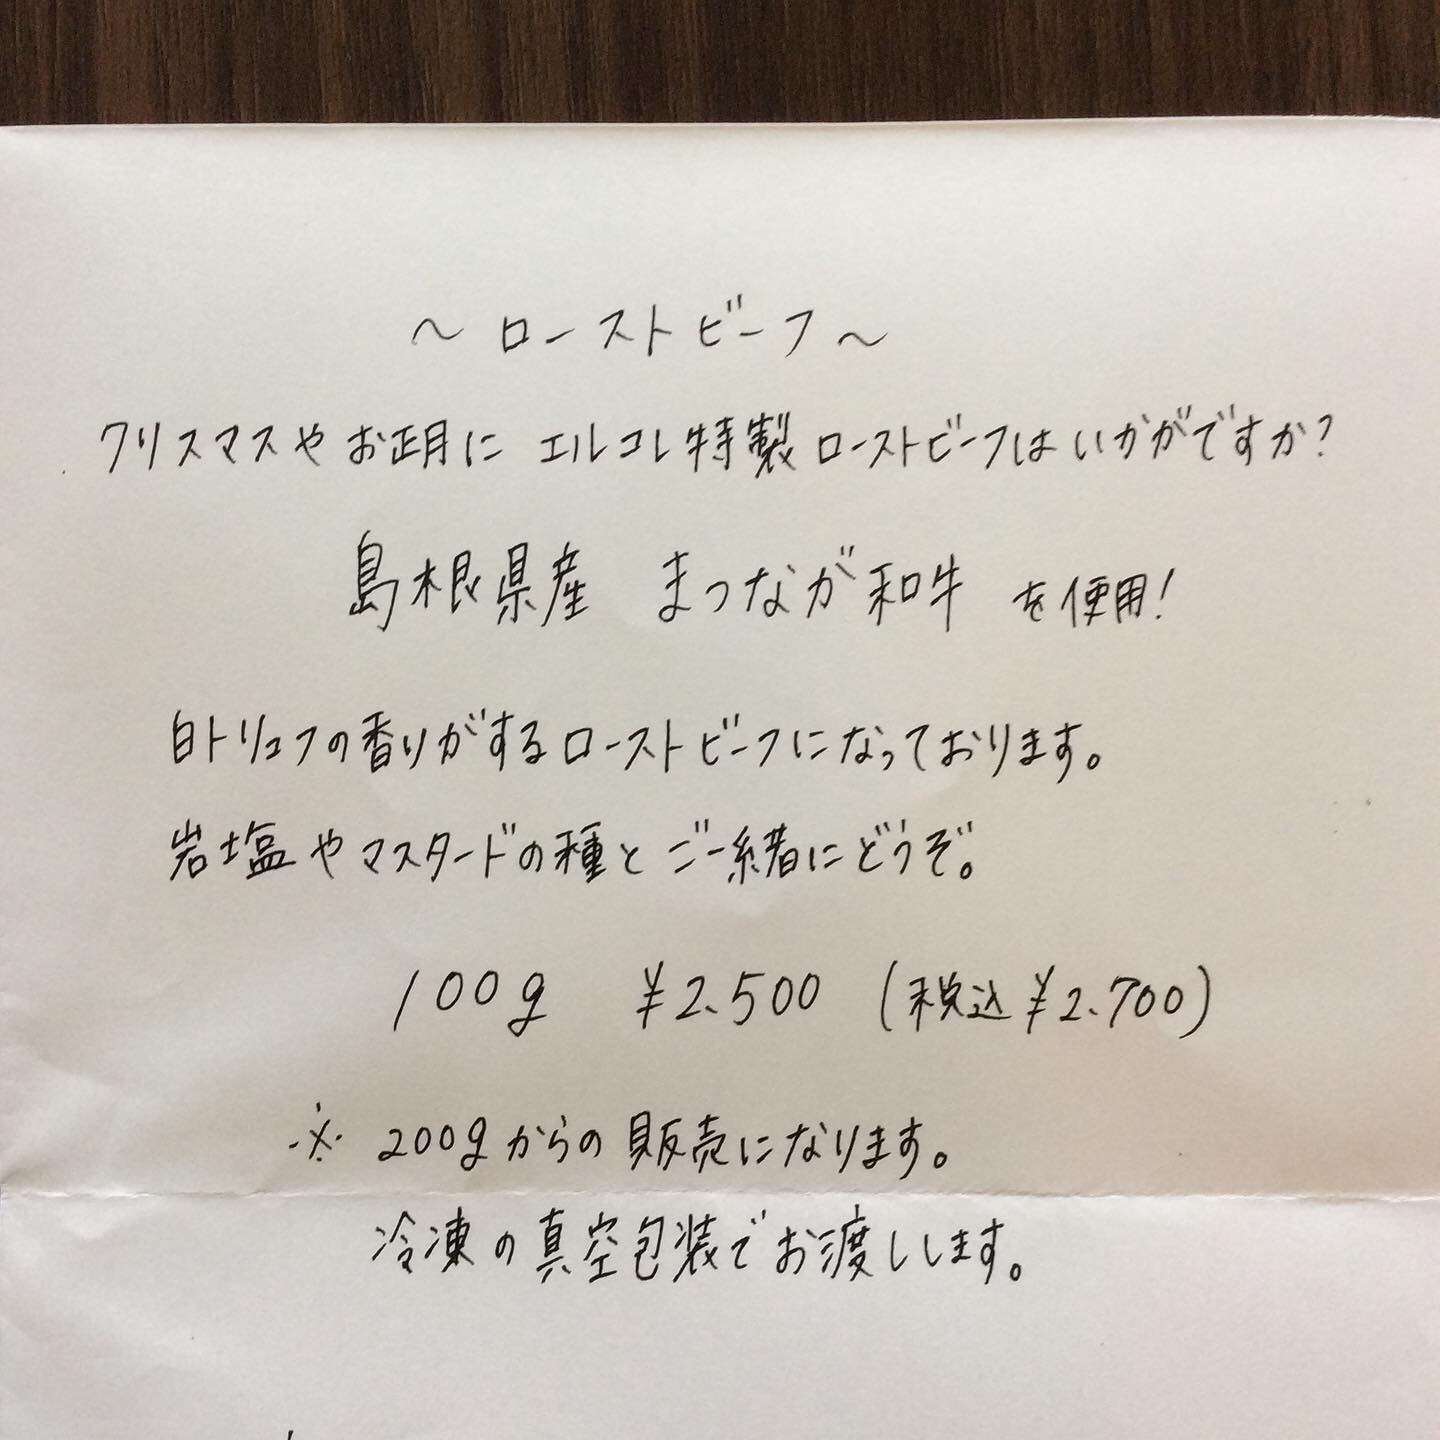 ～ローストビーフ～
クリスマスやお正月に エルコレ特製ローストビーフはいかがですか?
島根県産 まつなが和牛 を使用!
白トリュフの香りがするローストビーフになっております。
岩塩やマスタードの種とご一緒にどうぞ。
100g ¥2.500 (税込¥2.700)
※ 200gからの販売になります。
冷凍の真空包装でお渡しします。